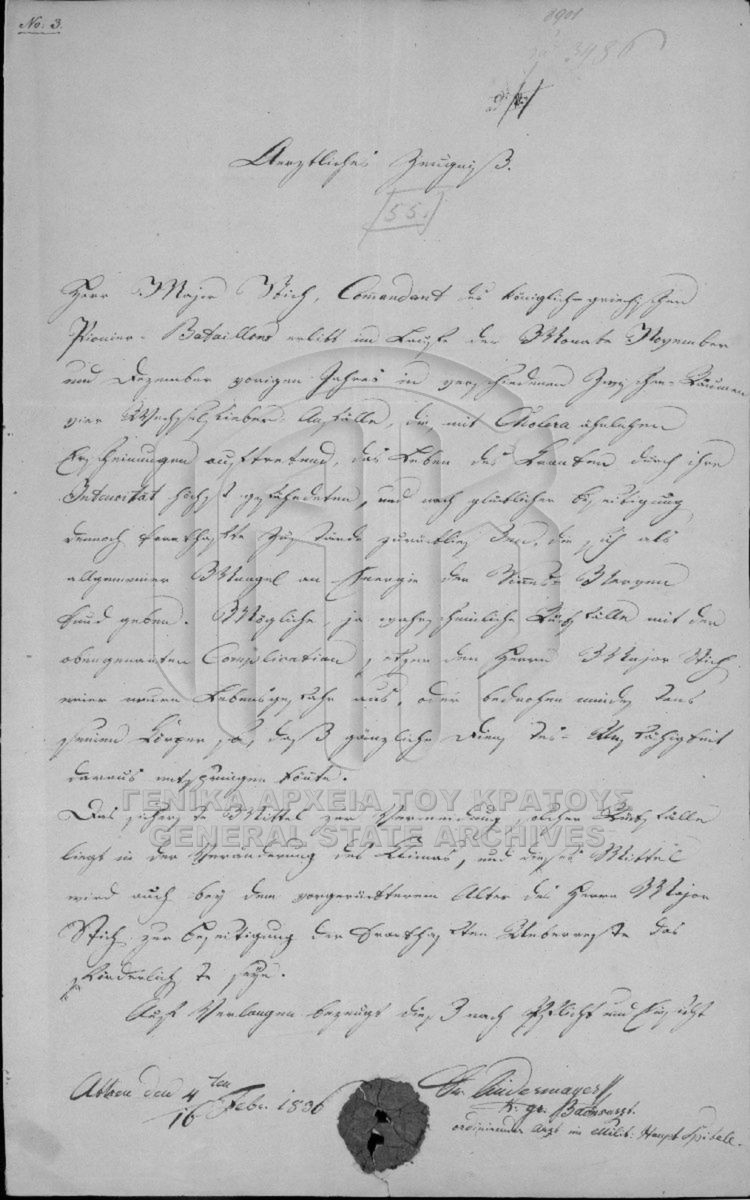 No. 3.
3486
Aerztliches Zeugniß.
[55.]
Herr Major Stich, Comandant des königlich-griechischen
Pionier-Bataillons erlitt im Laufe der Monate November
und Dezember vorigen Jahres in verschiedenen Zwischen-Räumen
vier Wechselfieber-Anfälle, die mit Cholera ähnlichen
Erscheinungen auftretend, das Leben des Kranken durch ihre
Intensität höchst gefährdeten, und nach glücklicher Beseitigung
dennoch krankhafte Zustände zurückließen, die sich als
allgemeiner Mangel an Energie der Nerven
kund geben. Mögliche, ja wahrscheinliche Rückfälle mit der
obengenannten Complication, setzen den Herrn Major Stich
einer neuen Lebensgefahr aus, oder bedrohen mindestens
seinen Körper so, daß gänzliche Dienstes-Unfähigkeit
daraus entspringen könte.
Das sicherste Mittel zur Vermeidung solcher Rückfälle
liegt in der Veränderung des Klimas, und dieses Mittel
wird auch bey dem vorgerückterem Alter des Herrn Major
Stich zur Beseitigung der krankhaften Ueberreste das
förderlichste seyn.
Auf Verlangen bezeugt dieß nach Pflicht und Einsicht
Athen den 4ten/16 Febr. 1836
Dr. Lindermayer
K. gr. Batnsarzt.
ordinirender Arzt im Milit: Haupt Spitale.
ΓΕΝΙΚΑ ΑΡΧΕΙΑ ΤΟΥ ΚΡΑΤΟΥΣ
GENERAL STATE ARCHIVES